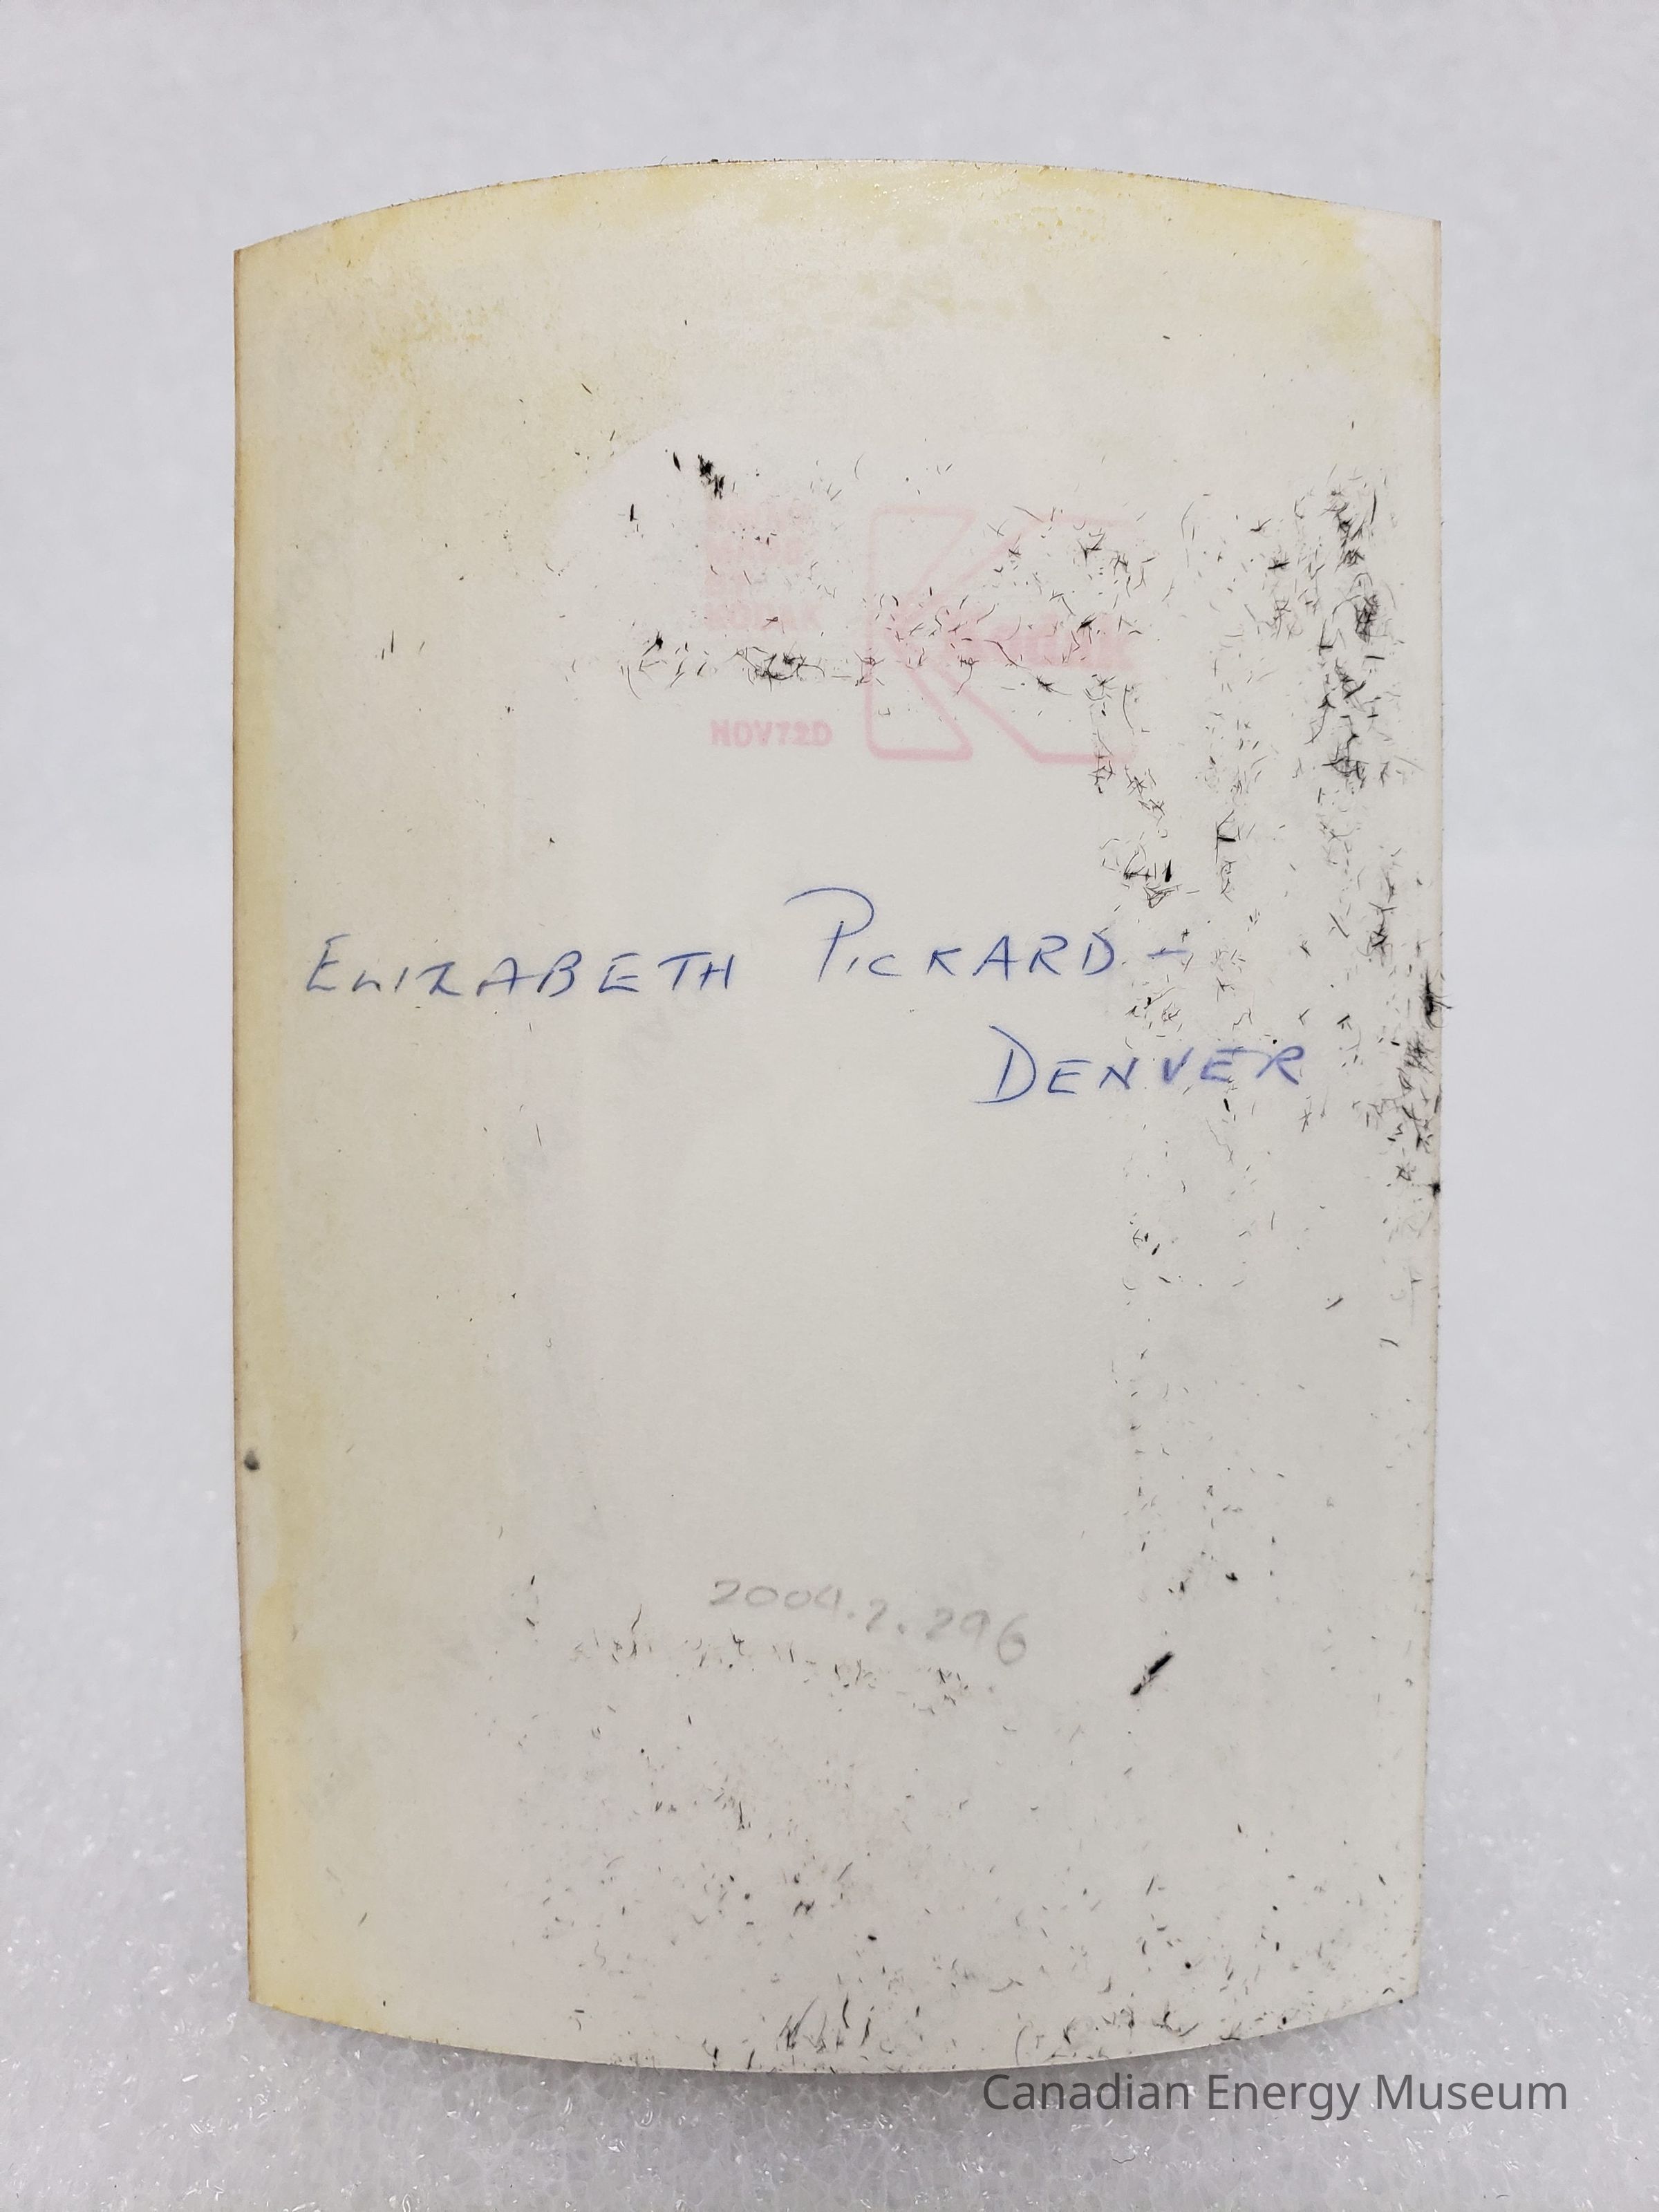 KODAK
NOV72D
ELIZABETH PICKARD -
DENVER
2004.2.296
Canadian Energy Museum